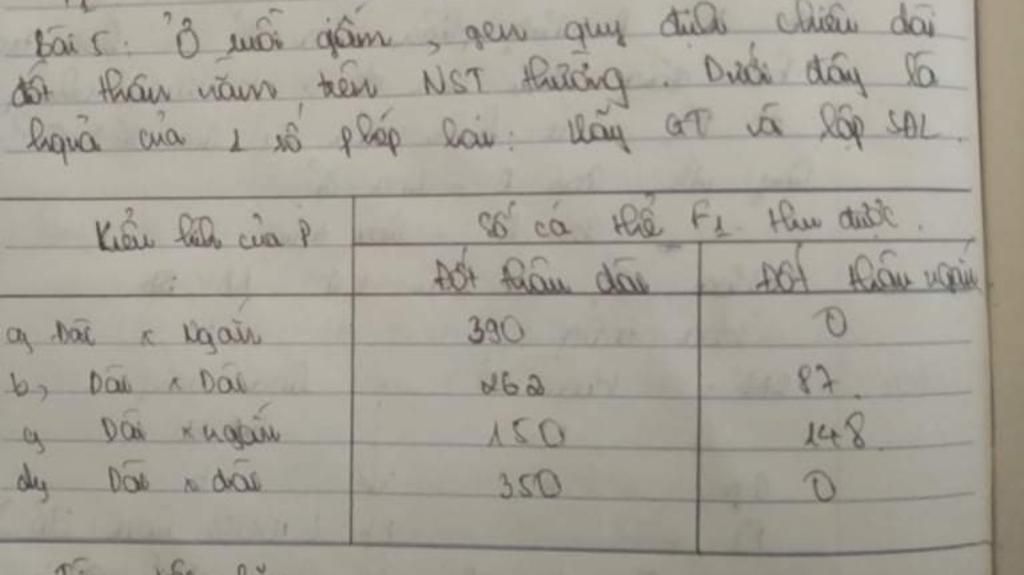 Bài 5: Ở ruồi giấm, gen quy định chiều dài
đốt thân nằm trên NST thường. Dưới đây là
kquả của 1 số phép lai: Hãy GT và lập SĐL.
Kiểu hình của P
Số cá thể F1 thu được.
Đốt thân dài
Đốt thân ngắn
a, Dài x Ngắn 390 0
b, Dài x Dài 262 87.
c, Dài x ngắn 150 148
d, Dài x dài 350 0